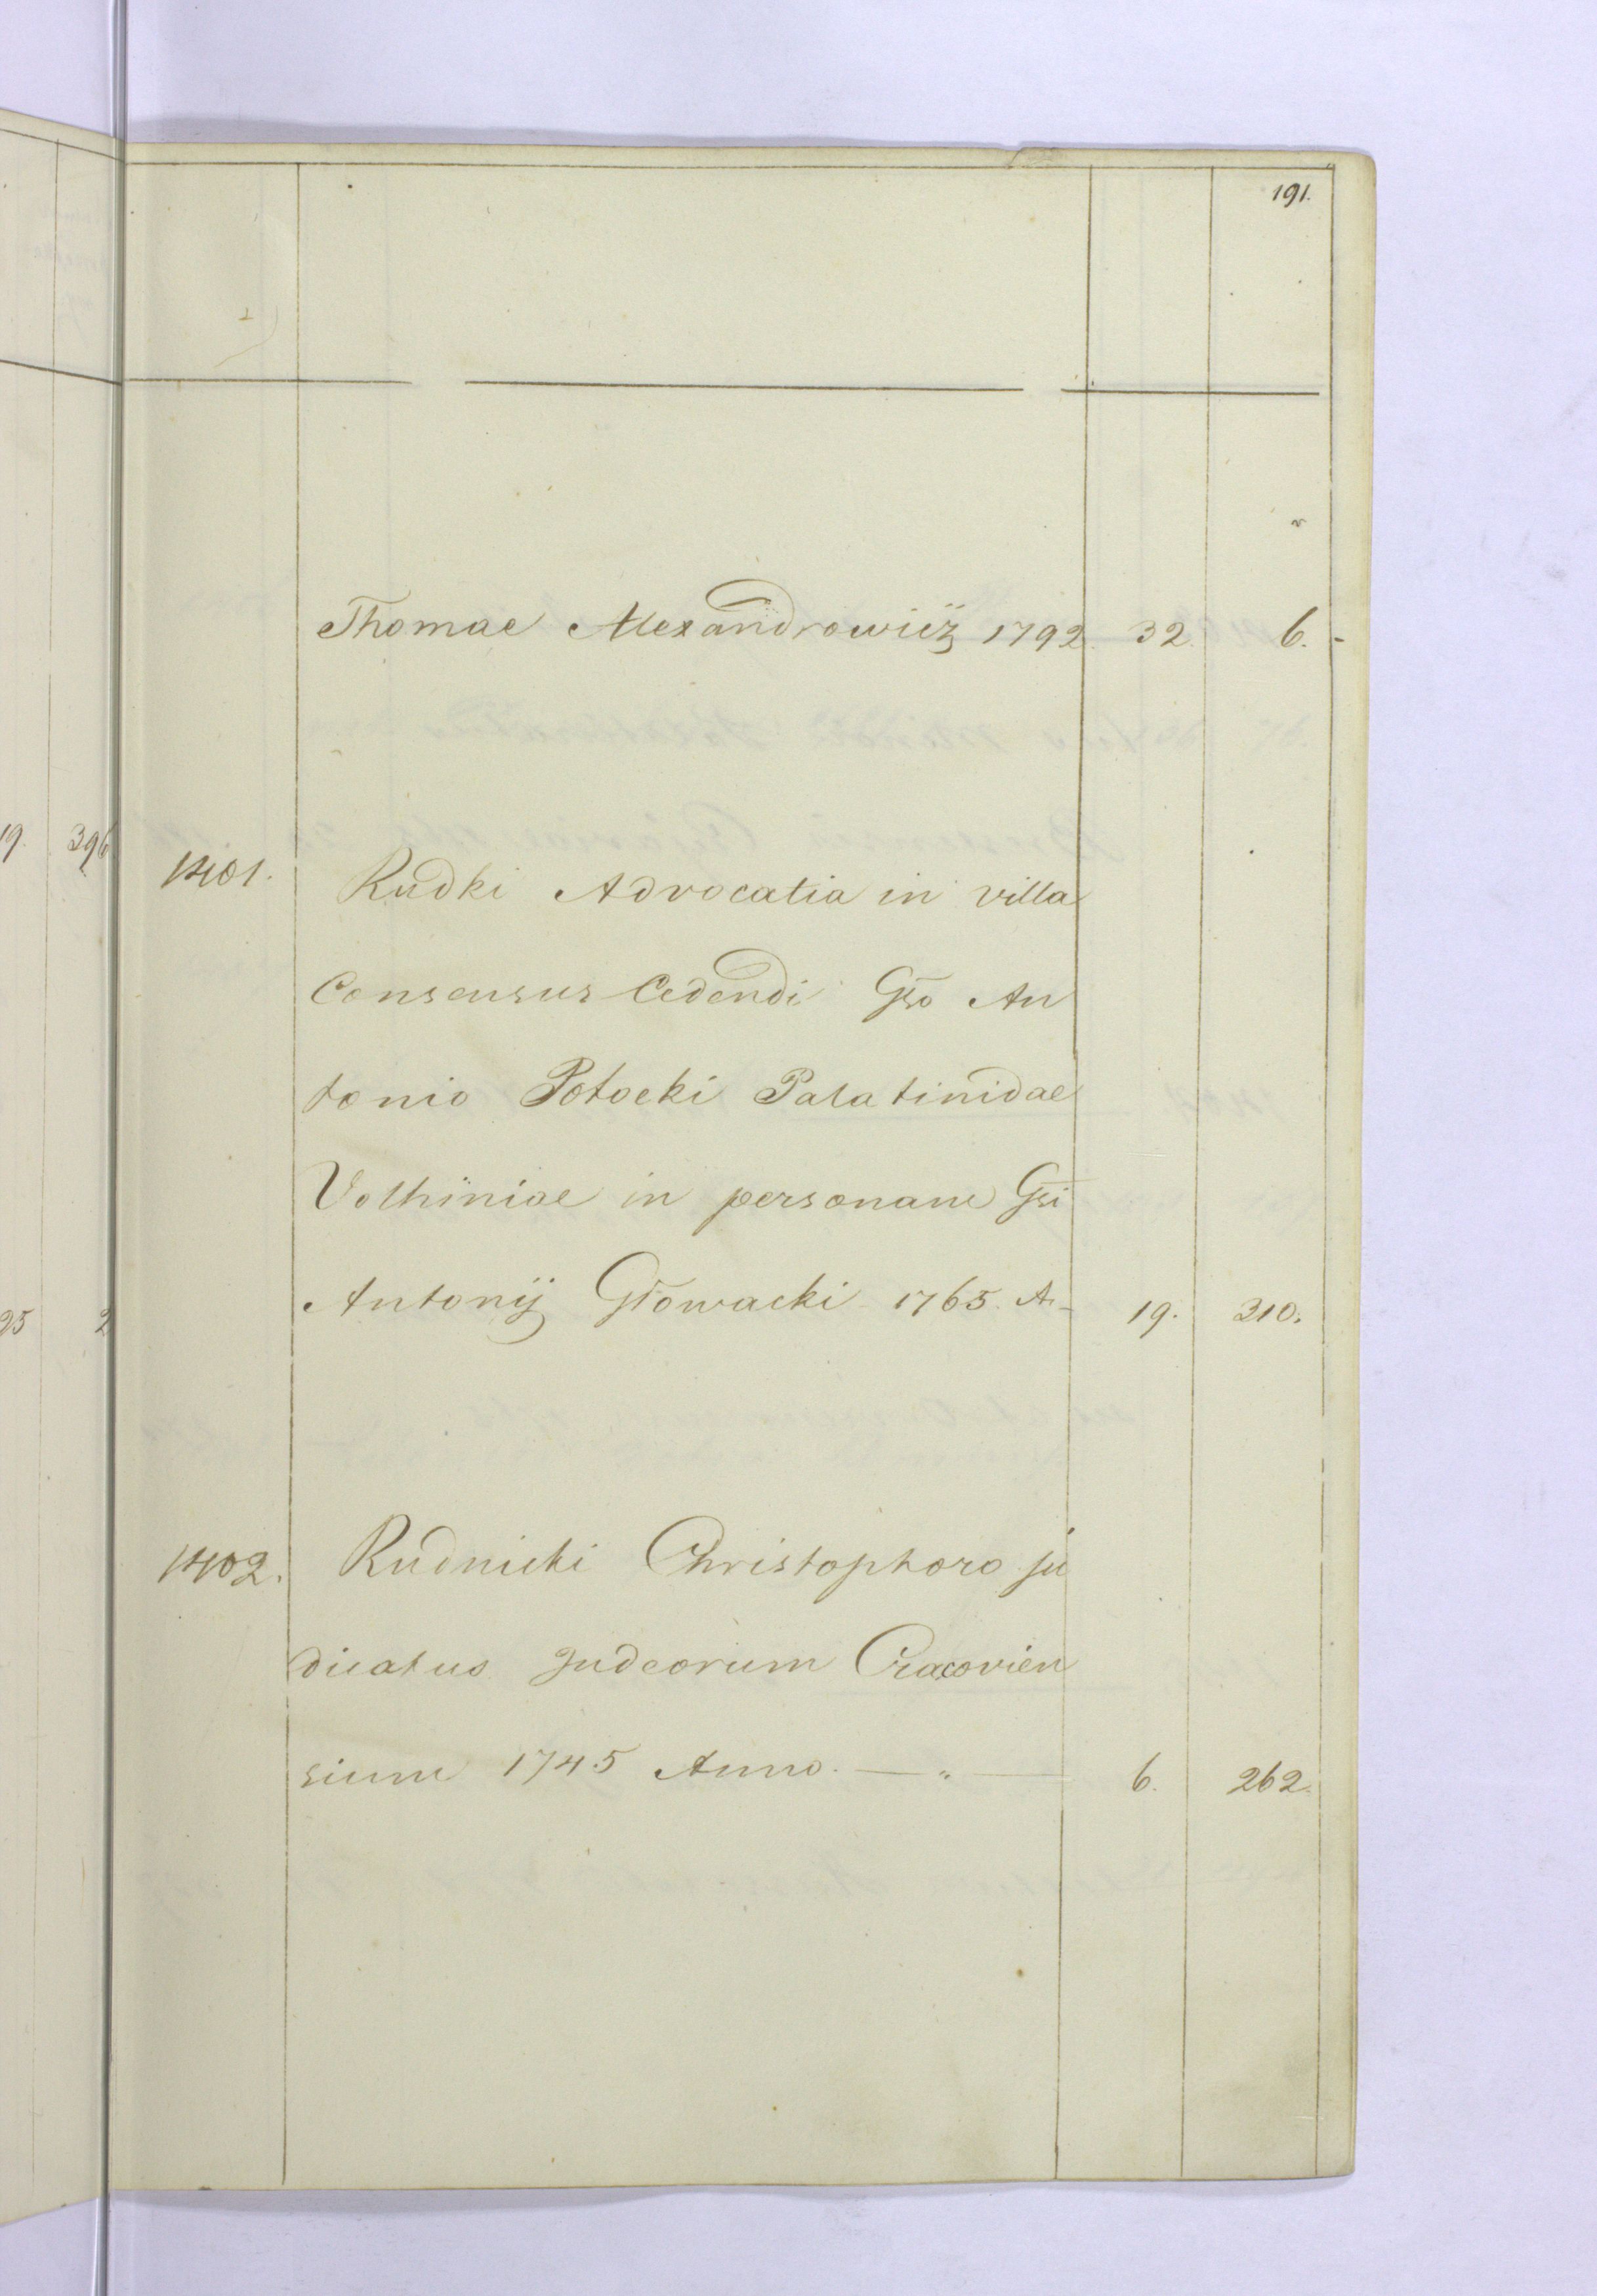 191.
Thomae Alexandrowicz 1792. 32. 6.-
19. 396
1401. Rudki Advocatia in villa
Consensus Cedendi Gso An
tonio Potocki Palatinidae
Volhiniae in personam Gsi
Antonij Głowacki 1765. A- 19. 310.
25 2
1402. Rudnicki Christophoro ju
dicatus Judeorum Cracovien
sium 1745 Anno. — " — 6. 262.